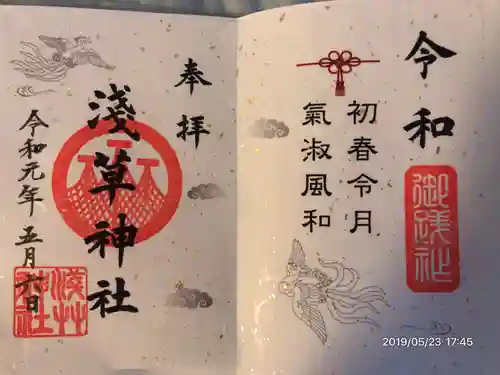 令和
初春令月
氣淑風和
御踐祚
奉拝
淺草神社
令和元年 五月六日
淺草神社
2019/05/23 17:45